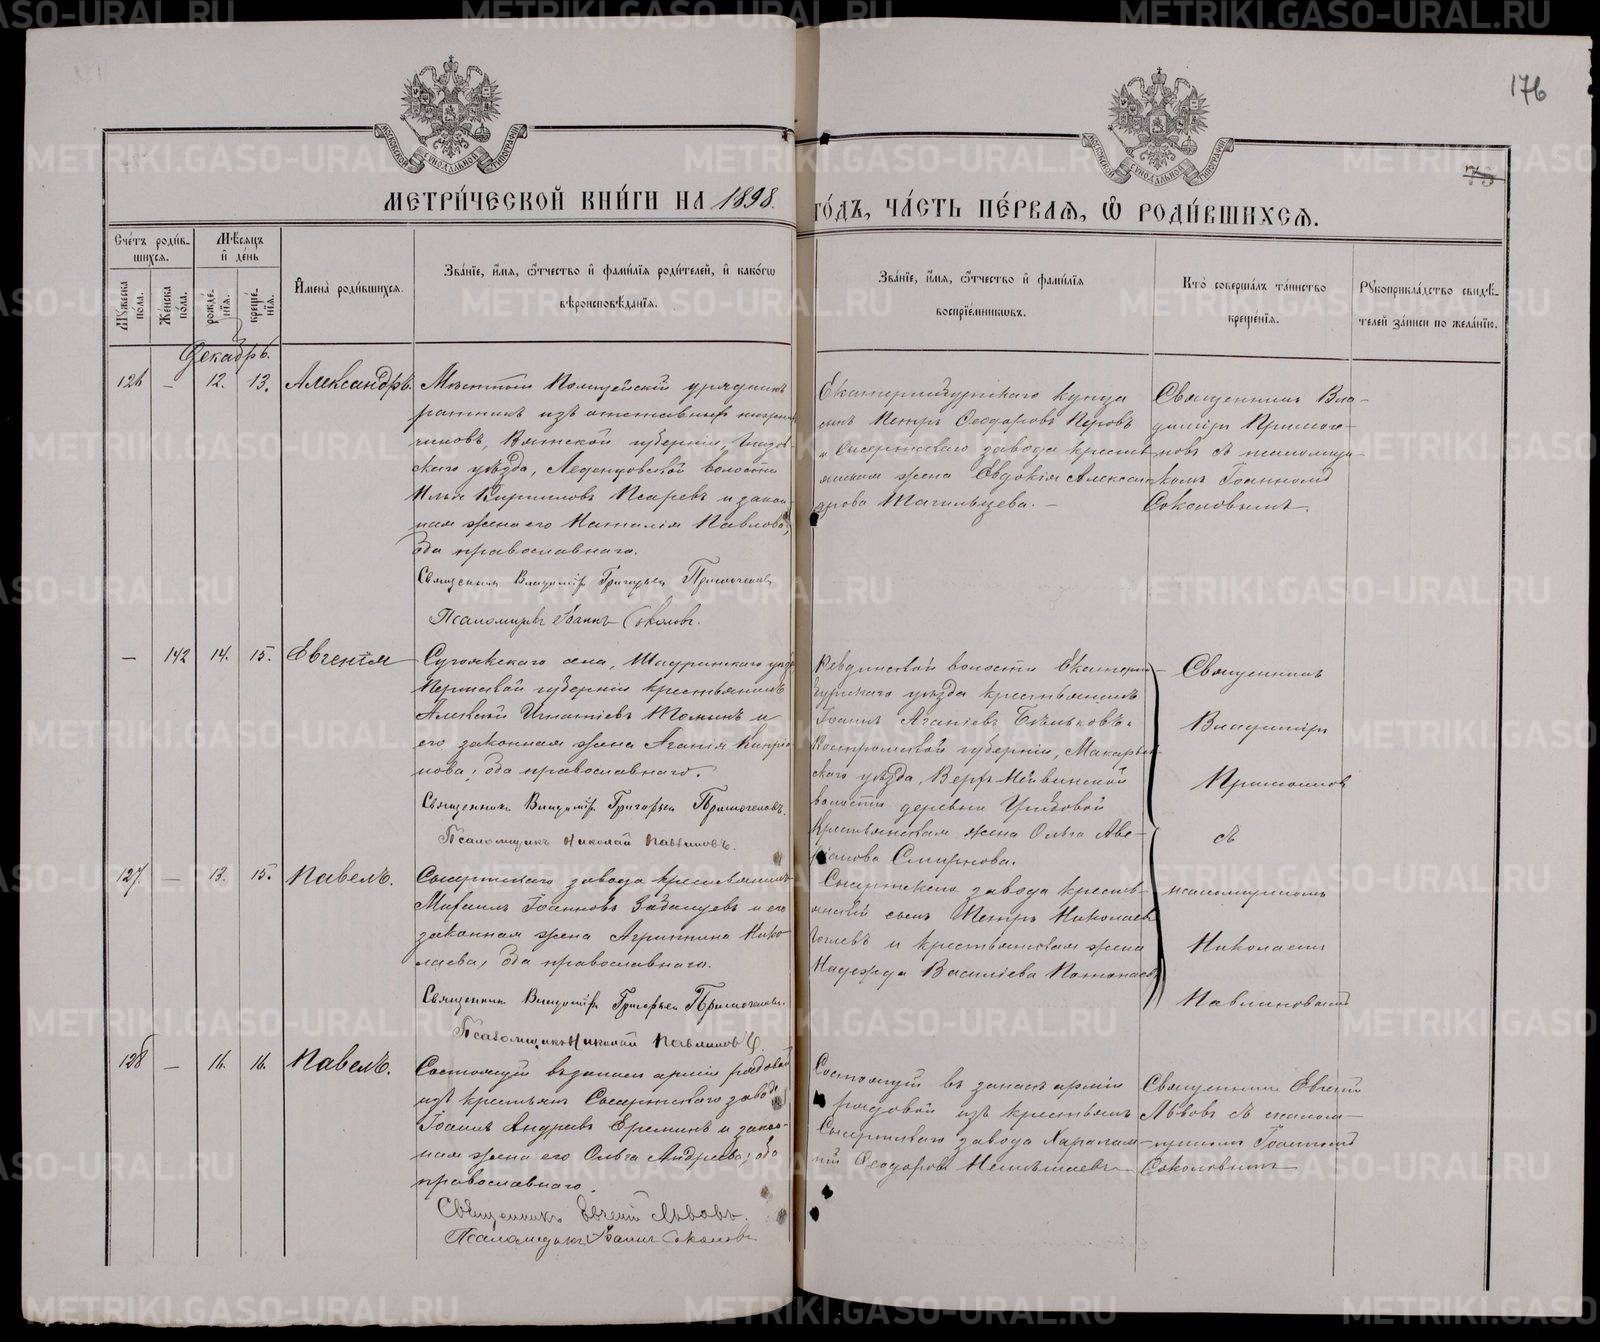 176
75
МЕТРИ́ЧЕСКОЙ КНИ́ГИ НА 1898
ГО́ДЪ, ЧА́СТЬ ПЕ́РВАЯ, Ѡ҆ РОДИ́ВШИХСЯ.
Сче́тъ роди́в-
шихся.
Мѣ́сяцъ
и҆ де́нь
Му́жеска по́ла.
Же́нска по́ла.
рожде́-
нїя.
креще́-
нїя.
И҆мена̀ роди́вшихся.
Зва́нїе, и҆́мя, ѻ҆́тчество и҆ фами́лїя роди́телей, и҆ како́гѡ
вѣроисповѣ́данїя.
Зва́нїе, и҆́мя, ѻ҆́тчество и҆ фами́лїя
воспрїе́мникѡвъ.
Кто̀ соверша́лъ та́инство
креще́нїя.
Рꙋкоприкла́дство свидѣ́-
телей за́писи по жела́нїю.
Декабрь.
126 — 12. 13. Александръ.
Мѣстный Полицейскій урядникъ
ратникъ изъ отставныхъ
чиновъ, Вятской губерніи,
скаго уѣзда, волости
Илья Кирилловъ Писаревъ и закон-
ная жена его Наталія Павлова,
оба православнаго.
Священникъ Владиміръ Григорьевъ
Псаломщикъ Іоаннъ Соколовъ.
Екатеринбургскаго купца
сынъ Петръ Ѳеодоровъ
и Сысертскаго завода крестъ-
янская жена Евдокія Алексан-
дрова Шагильцева. —
Священникъ Вла-
диміръ
съ псаломщи-
комъ Іоанномъ
Соколовымъ.
— 142 14. 15. Евгенія
Сугоякскаго села, Шадринскаго уѣзда
Пермской губерніи крестьянинъ
Алексій Игнатіевъ и
его законная жена Агапія Кипріа-
нова, оба православнаго.
Священникъ Владиміръ Григорьевъ
Псаломщикъ Николай Павлиновъ.
Ревдинской волости Екатерин-
бургскаго уѣзда крестьянинъ
Іоаннъ Агапіевъ
Костромской губерніи, Макарьев-
скаго уѣзда,
волости деревни
Крестьянская жена Ольга
Смирнова.
Священникъ
Владиміръ
съ
псаломщикомъ
Николаемъ
Павлиновымъ
127. — 13. 15. Павелъ.
Сысертскаго завода крестьянинъ
Михаилъ Іоанновъ и его
законная жена Агриппина Нико-
лаева, оба православнаго.
Священникъ Владиміръ Григорьевъ
Псаломщикъ Николай Павлиновъ.
Сысертскаго завода кресть-
янскій сынъ Петръ Николаевъ
и крестьянская жена
Надежда Василіева
128 — 16. 16. Павелъ.
Состоящій въ запасѣ арміи рядовой
изъ крестьянъ Сысертскаго завода
Іоаннъ Андреевъ Ереминъ и закон-
ная жена его Ольга Андреева, оба
православнаго.
Священникъ Евгеній Львовъ.
Псаломщикъ Іоаннъ Соколовъ
Состоящій въ запасѣ арміи
рядовой изъ крестьянъ
Сысертскаго завода Харалам-
пій Ѳеодоровъ
Священникъ Евгеній
Львовъ съ псалом-
щикомъ Іоанномъ
Соколовымъ
METRIKI.GASO-URAL.RU